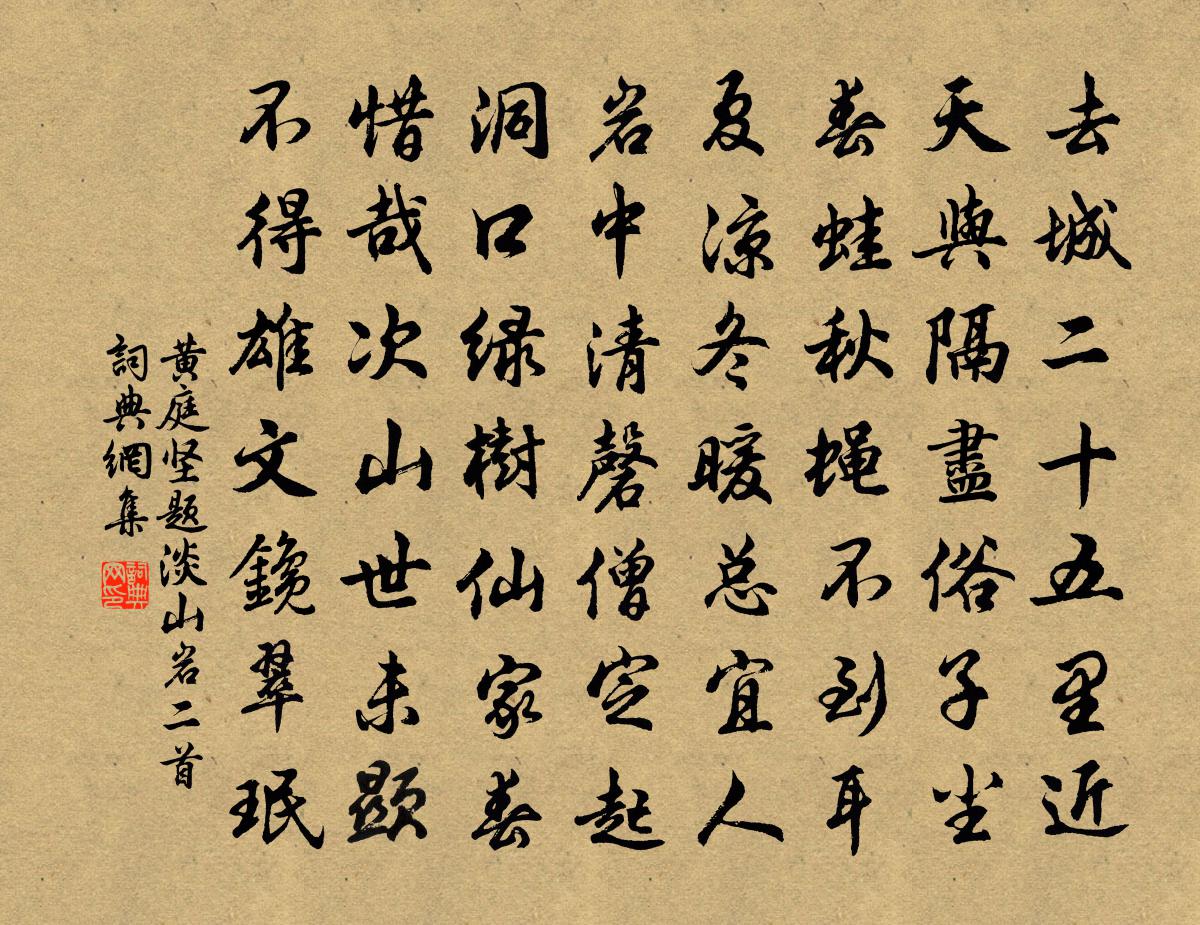 去城二十五里近
天與隔盡俗子尘
春蛙秋蝇不到耳
夏凉冬暖总宜人
岩中清磬僧定起
洞口绿樹仙家春
惜哉次山世未顯
不得雄文鑱翠珉
黄庭坚题淡山岩二首
詞典網集
詞典网印